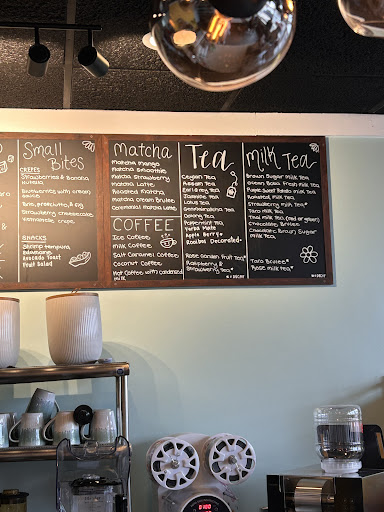 Small
Bites
CREPES
Strawberries & Banana
Nutella
Blueberries with cream
Brie, prosciutto, & egg
Strawberry cheesecake
SNACKS
Shrimp tempura
Edamame
Avocado Toast
Fruit Salad
Matcha
Matcha Mango
Matcha Smoothie
Matcha Strawberry
Matcha Latte
Roasted Matcha
Matcha Cream Brulee
Ceremonial Matcha Latte
COFFEE
Ice Coffee
Milk Coffee
Salt Caramel Coffee
Coconut Coffee
Hot Coffee with condensed
milk
Tea
Ceylon Tea
Assam Tea
Earl Grey Tea
Jasmine Tea
Lotus Tea
Oolong Tea
Peppermint Tea
Yerba Mate
Apple Berry
Rooibos Decorated
Rose Garden Fruit Tea*
Raspberry &
Strawberry Tea*
Milk Tea
Brown Sugar Milk Tea
Green Base Fresh Milk Tea
Purple Sweet Potato Milk Tea
Roasted Milk Tea
Strawberry Milk Tea
Taro Milk Tea
Thai Milk Tea (red or green)
Chocolate Brulee
Chocolate Brown Sugar
Milk Tea
Taro Brulee*
Rose Milk Tea*